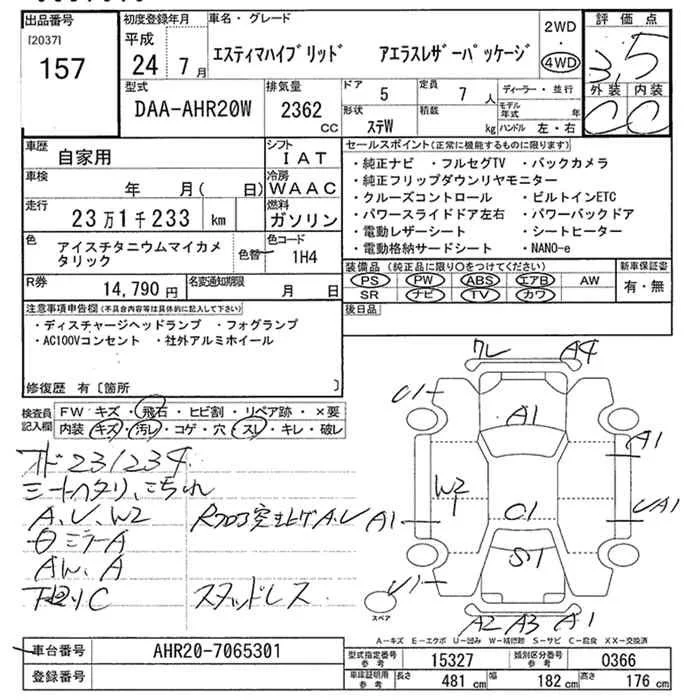 出品番号
[2037]
157
初度登録年月
平成
24 7月
車名・グレード
エスティマハイブリッド アエラスレザーパッケージ
2WD
・
4WD
評価点
3.5
外装 内装
C C
型式
DAA-AHR20W
排気量
2362
CC
ドア 5
定員 7人
形状 ステW
積載 kg
ディーラー・並行
モデル年式 年
ハンドル 左・右
車歴 自家用
シフト IAT
車検 年 月( 日)
冷房 WAAC
走行 23万1千233 km
燃料 ガソリン
色 アイスチタニウムマイカメタリック
色替
色コード 1H4
R券 14,790円
名変通知期限 月 日
セールスポイント(正常に機能するものに限ります)
・純正ナビ ・フルセグTV ・バックカメラ
・純正フリップダウンリヤモニター
・クルーズコントロール ・ビルトインETC
・パワースライドドア左右 ・パワーバックドア
・電動レザーシート ・シートヒーター
・電動格納サードシート ・NANO-e
装備品(純正品に限り○をつけてください)
PS PW ABS エアB AW
SR ナビ TV カワ
新車保証書
有・無
後日品
注意事項申告欄(不具合内容等は具体的に記入して下さい)
・ディスチャージヘッドランプ ・フォグランプ
・AC100Vコンセント ・社外アルミホイール
修復歴 有〔箇所 〕
検査員記入欄
FW キズ・飛石・ヒビ割・リペア跡・×要
内装 キズ・汚レ・コゲ・穴・スレ・キレ・破レ
231234
A、U、W2
ミラーA
AW、A
下廻りC
スタッドレス
フレ A4
U1
A1
A1
W2
A1
C1
UA1
S1
U1
A2 A3 A1
スペア
A-キズ E-エクボ U-凹み W-補修跡 S-サビ C-腐食 XX-交換済
車台番号 AHR20-7065301
登録番号
型式指定番号 参考 15327
類別区分番号 参考 0366
車庫証明用 参考 長さ 481 cm 幅 182 cm 高さ 176 cm